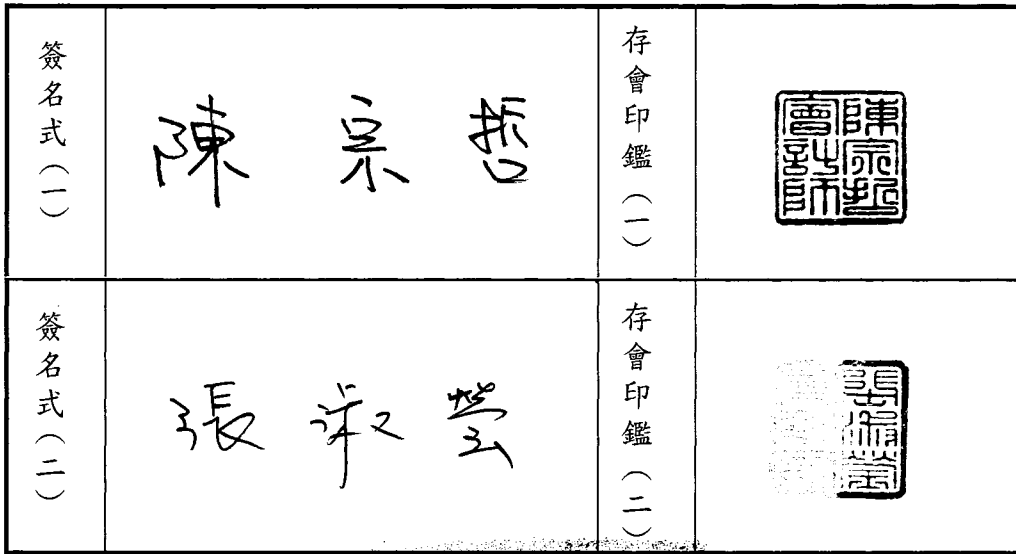 簽名式(一)
陳宗哲
存會印鑑(一)
陳宗哲
會計師
簽名式(二)
張淑瑩
存會印鑑(二)
張淑瑩